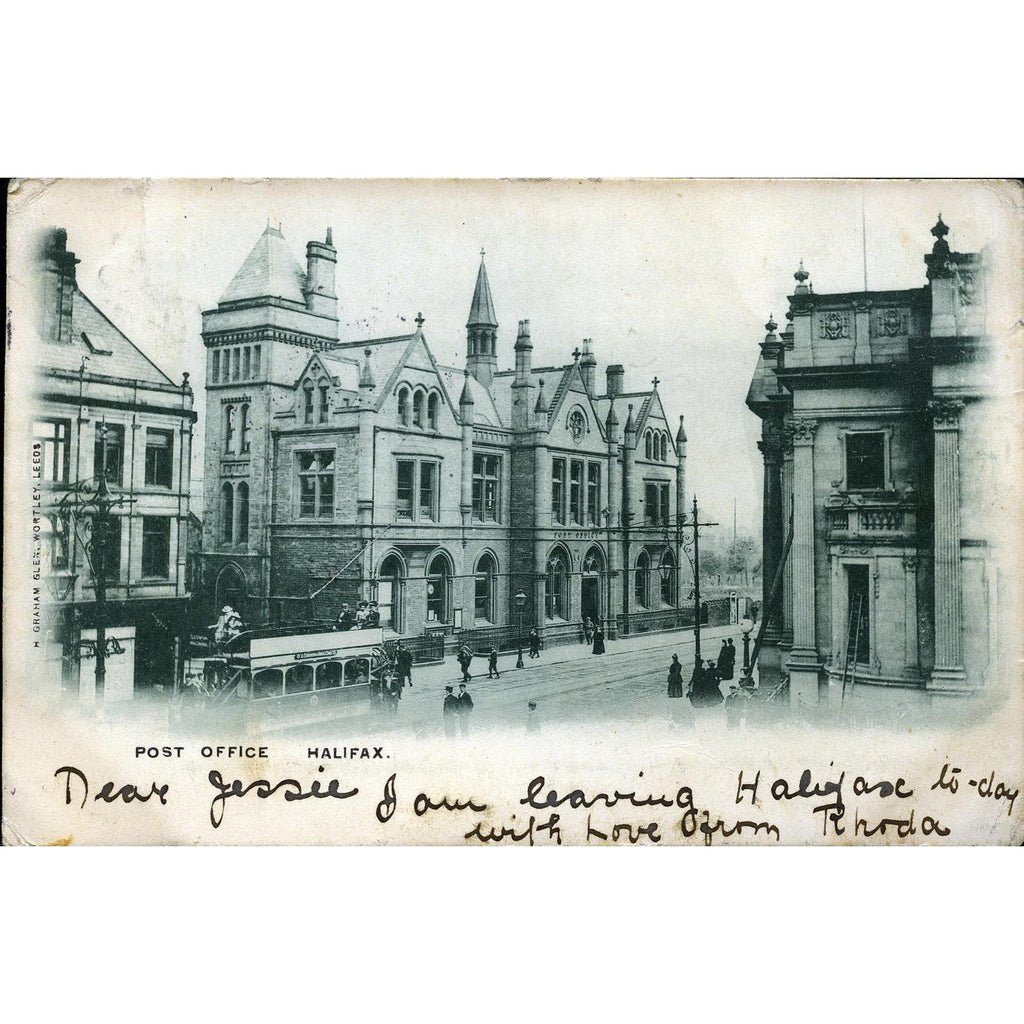 H GRAHAM GLEN, WORTLEY, LEEDS
POST OFFICE
POST OFFICE HALIFAX.
Dear Jessie I am leaving Halifax to-day
with Love from Rhoda